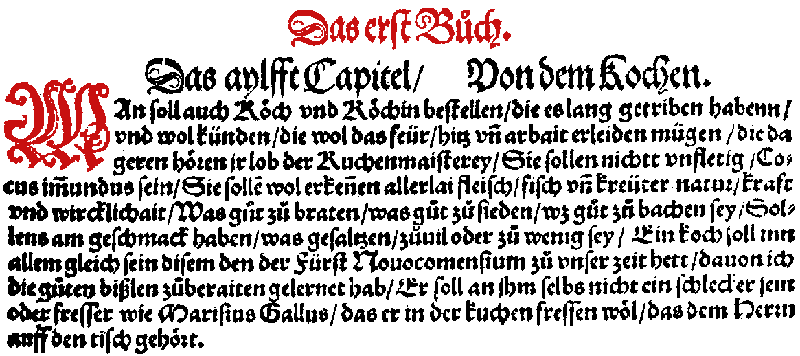 Das erst Bůch.
Das aylfft Capitel/ Von dem Kochen.
MAn soll auch Köch vnd Köchin bestellen/die es lang getriben habenn/
vnd wol künden/die wol das feür/hitz vn̄ arbait erleiden mügen /die da
geren hören ir lob der Kuchenmaisterey/Sie sollen nichtt vnfletig /Co⸗
cus im̄undus sein/Sie solle͂ wol erken̄en allerlai fleisch/fisch vn̄ kreüter natur/krafft
vnd wircklichait/Was gůt zů braten/was gůt zů sieden/wz gůt zů bachen sey/Sol⸗
lens am geschmack haben/was gesaltzen/zůuil oder zů wenig sey/ Ein koch soll mit
allem gleich sein disem den der Fürst Nouocomensium zů vnser zeit hett/dauon ich
die gůten bißlen zůberaiten gelernet hab/Er soll an ihm selbs nicht ein schlecker sein
oder fresser wie Marisius Gallus/das er in der kuchen fressen wöl/das dem Herrn
auff den tisch gehört.